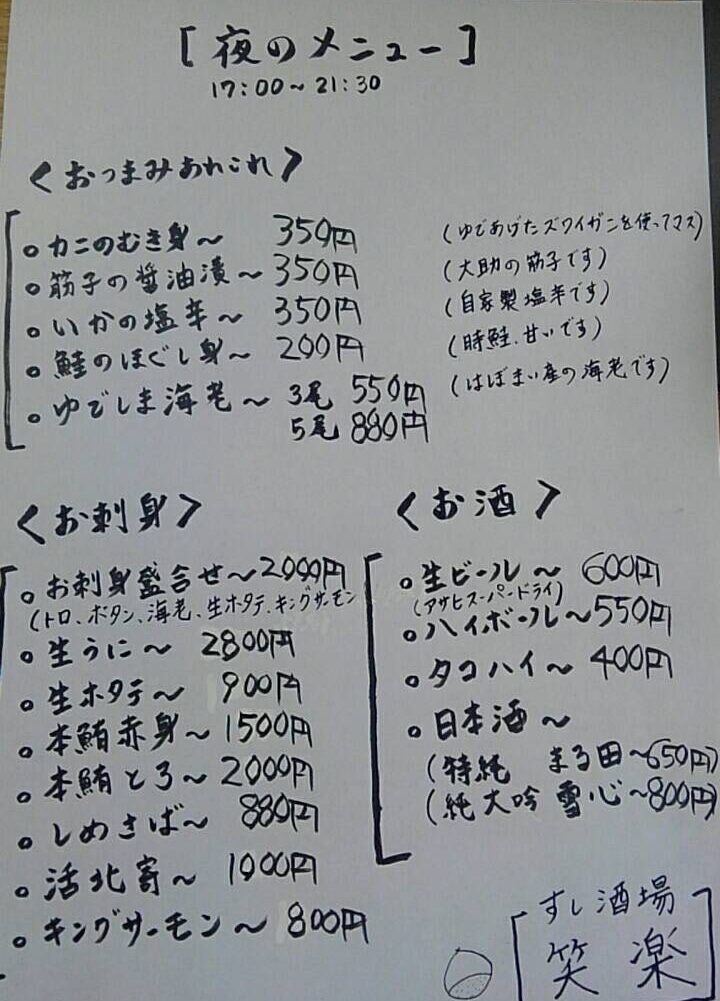 [夜のメニュー]
17:00～21:30
<おつまみあれこれ>
○カニのむき身～ 350円 (ゆであげたズワイガニを使ってマス)
○筋子の醤油漬～350円 (大助の筋子です)
○いかの塩辛～ 350円 (自家製塩辛です)
○鮭のほぐし身～ 200円 (時鮭、甘いです)
○ゆでしま海老～ 3尾 550円 (はぼまい産の海老です)
5尾 880円
<お刺身>
○お刺身盛合せ～2000円
(トロ、ボタン、海老、生ホタテ、キングサーモン
○生うに～ 2800円
○生ホタテ～ 900円
○本鮪赤身～1500円
○本鮪とろ～2000円
○しめさば～ 880円
○活北寄～ 1000円
○キングサーモン～ 800円
<お酒>
○生ビール～ 600円
(アサヒスーパードライ)
○ハイボール～550円
○タコハイ～ 400円
○日本酒～
(特純 まる田～650円)
(純大吟 雪心～800円)
すし酒場
笑楽